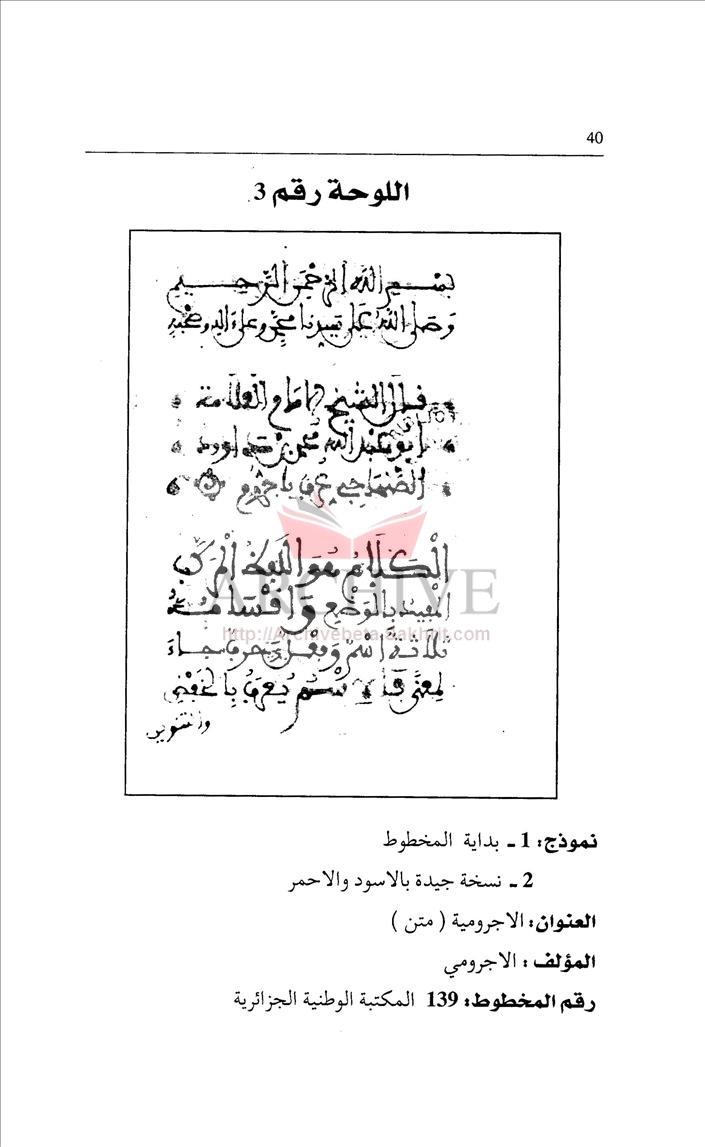 40
اللوحة رقم 3
بسم الله الرحمن الرحيم
وصلى الله على سيدنا محمد وعلى اله وصحبه
قال الشيخ الامام العلامة
ابو عبد الله محمد بن داوود
الصنهاجي عرف باجروم
الْكَلَامُ هُوَ اللَّفْظُ الْمُرَكَّبُ
المفيد بالوَضْعِ وَأَقْسَامُهُ
ثَلَاثَةٌ اسْمٌ وَفِعْلٌ وَحَرْفٌ جَاءَ
لِمَعْنًى فَالاسْمُ يُعْرَفُ بِالْخَفْضِ
والتنوين
ARCHIVE
http://Archivebeta.Sakhrit.com
نموذج: 1 ـ بداية المخطوط
2 ـ نسخة جيدة بالاسود والاحمر
العنوان: الاجرومية ( متن )
المؤلف : الاجرومي
رقم المخطوط: 139 المكتبة الوطنية الجزائرية